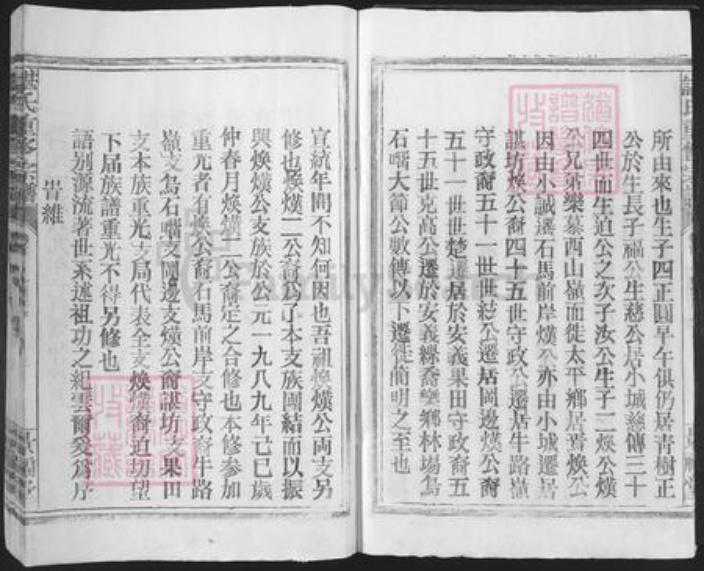 所由來也生子四正圓早午俱仍居青樹正
公於生長子福公生慈公居小城慈傳三十
四世而生迫公之次子汝公生子二煥公熯
公兄弟樂慕西山嶺而徙太平鄉居焉煥公
因由小誠遷石馬前岸熯公亦由小城遷居
諶坊煥公裔四十五世守政公遷居牛路嶺
守政裔五十一世世公遷居岡邊熯公裔
五十一世世楚遷居於安義果田守政裔五
十五世克高公遷於安義縣喬樂鄉林場烏
石嘴大節公數傳以下遷徙簡明之至也
宣統年間不知何因也吾祖煥熯公両支另
修也煥熯二公裔為了本支族團結而以振
興煥熯公支族於公元一九八九年己巳歲
仲春月煥熯二公裔定之合修也本修參加
重光者有煥公裔石馬前岸支守政裔牛路
嶺支烏石嘴支岡邊支熯公裔諶坊支果田
支本族重光支局代表全支煥熯裔迫切望
下届族譜重光不得另修也
語别源流著世系述祖功之紀雲爾爰為序
旹維
諶氏重修宗譜